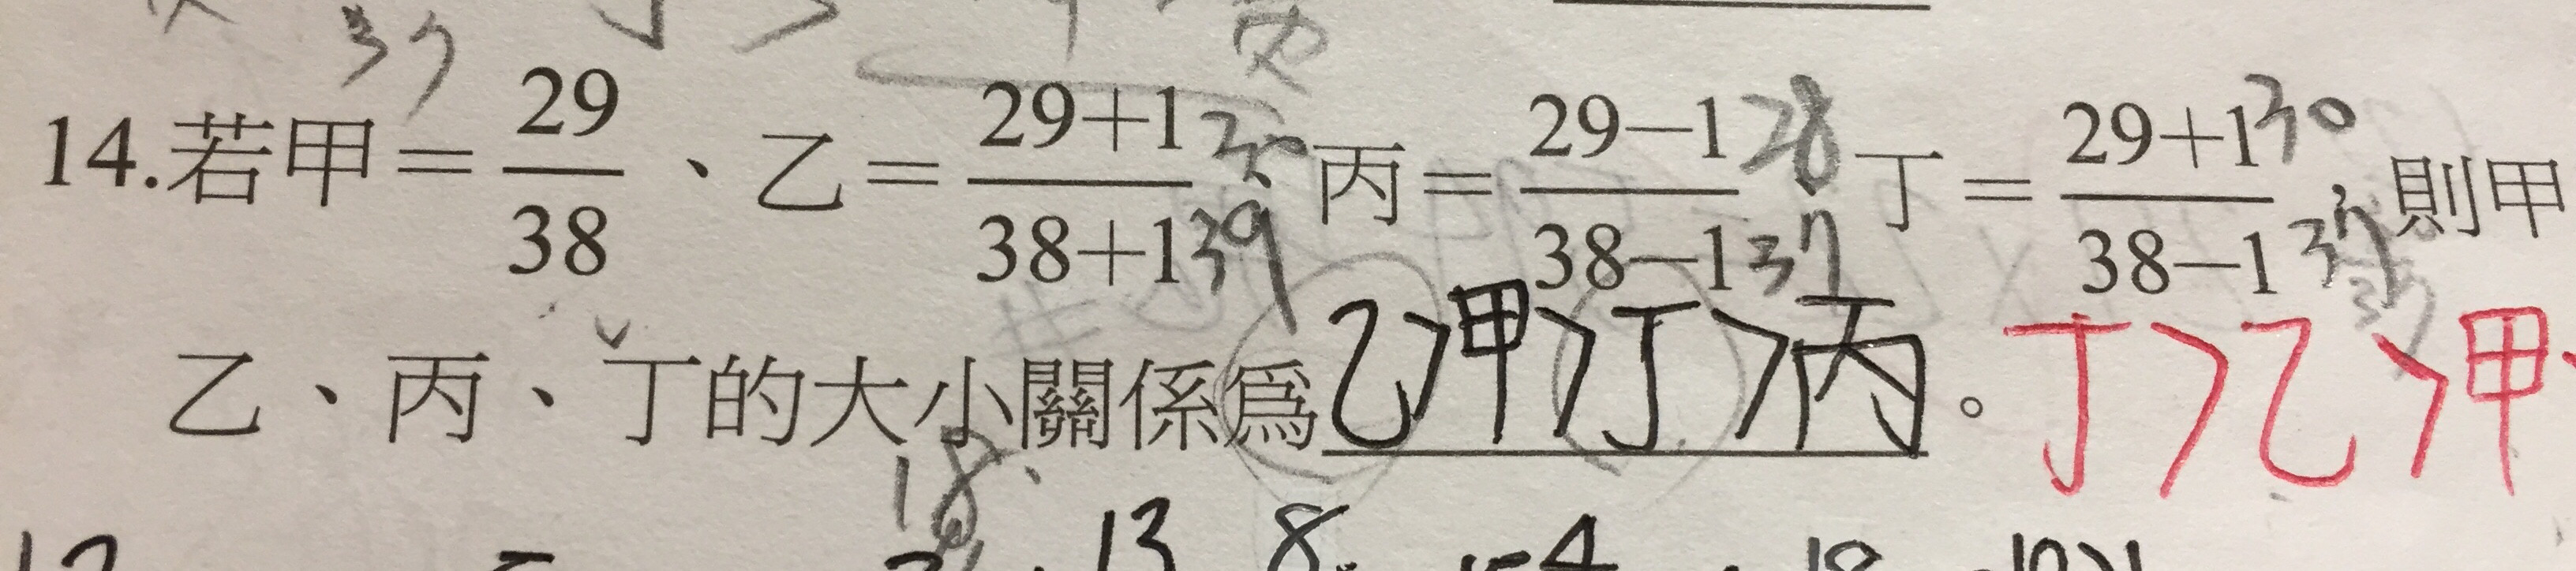 37
14.若甲=29/38、乙=29+1/38+1 30 39、丙=29-1/38-1 28 37、丁=29+1/38-1 30 37,則甲
37
乙、丙、丁的大小關係為乙>甲>丁>丙。丁>乙>甲
18
13 8